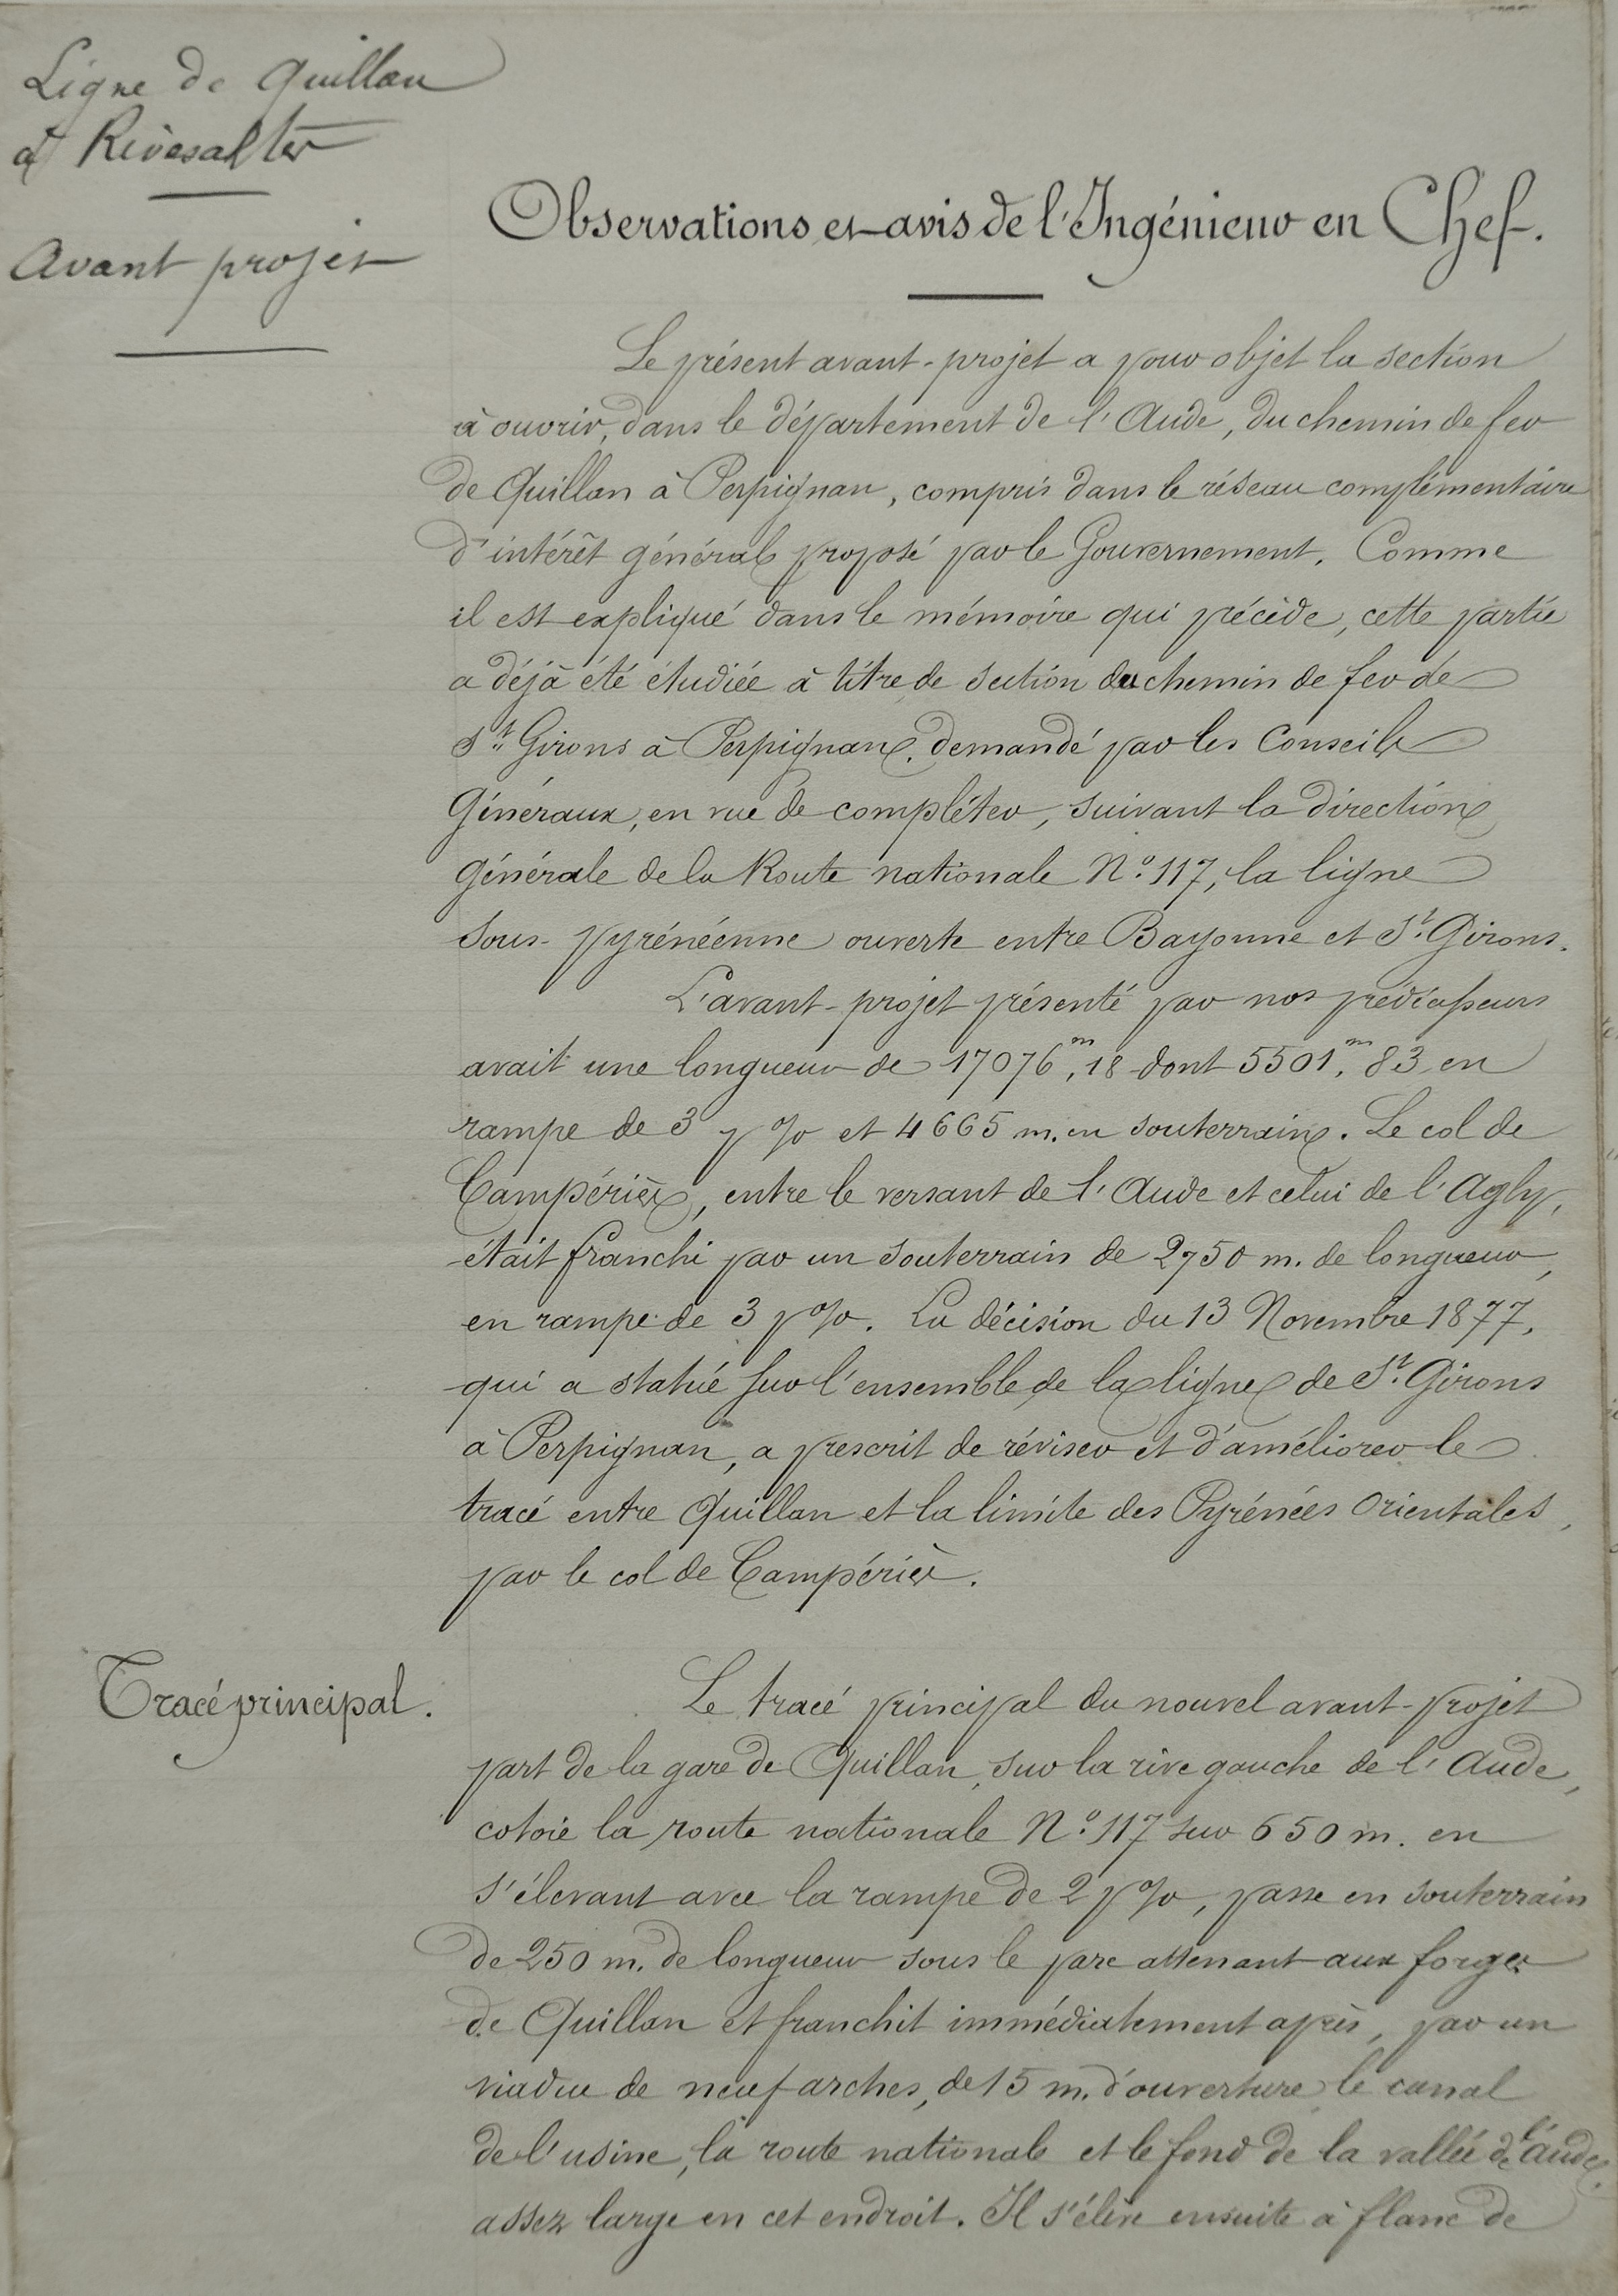 Ligne de Quillan
à Rivesaltes
Avant projet
Observations et avis de l'Ingénieur en Chef.
Le présent avant-projet a pour objet la section
à ouvrir, dans le département de l'Aude, du chemin de fer
de Quillan à Perpignan, compris dans le réseau complémentaire
d'intérêt général proposé par le Gouvernement. Comme
il est expliqué dans le mémoire qui précède, cette partie
a déjà été étudiée à titre de section du chemin de fer de
St Girons à Perpignan, demandé par les Conseils
Généraux, en vue de compléter, suivant la direction
générale de la Route nationale No. 117, la ligne
sous-pyrénéenne ouverte entre Bayonne et St. Girons.
L'avant-projet présenté par nos prédécesseurs
avait une longueur de 17076m,18 dont 5501m,83 en
rampe de 3 p% et 4665 m. en souterrain. Le col de
Campérièr, entre le versant de l'Aude et celui de l'Agly,
était franchi par un souterrain de 2750 m. de longueur,
en rampe de 3 p%. La décision du 13 Novembre 1877,
qui a statué sur l'ensemble de la ligne de St. Girons
à Perpignan, a prescrit de réviser et d'améliorer le
tracé entre Quillan et la limite des Pyrénées Orientales,
par le col de Campérièr.
Tracé principal.
Le tracé principal du nouvel avant-projet
part de la gare de Quillan, sur la rive gauche de l'Aude,
cotoie la route nationale No. 117 sur 650 m. en
s'élevant avec la rampe de 2 p%, passe en souterrain
de 250 m. de longueur sous le parc attenant aux forges
de Quillan et franchit immédiatement après, par un
viaduc de neuf arches, de 15 m. d'ouverture le canal
de l'usine, la route nationale et le fond de la vallée de l'Aude,
assez large en cet endroit. Il s'élève ensuite à flanc de